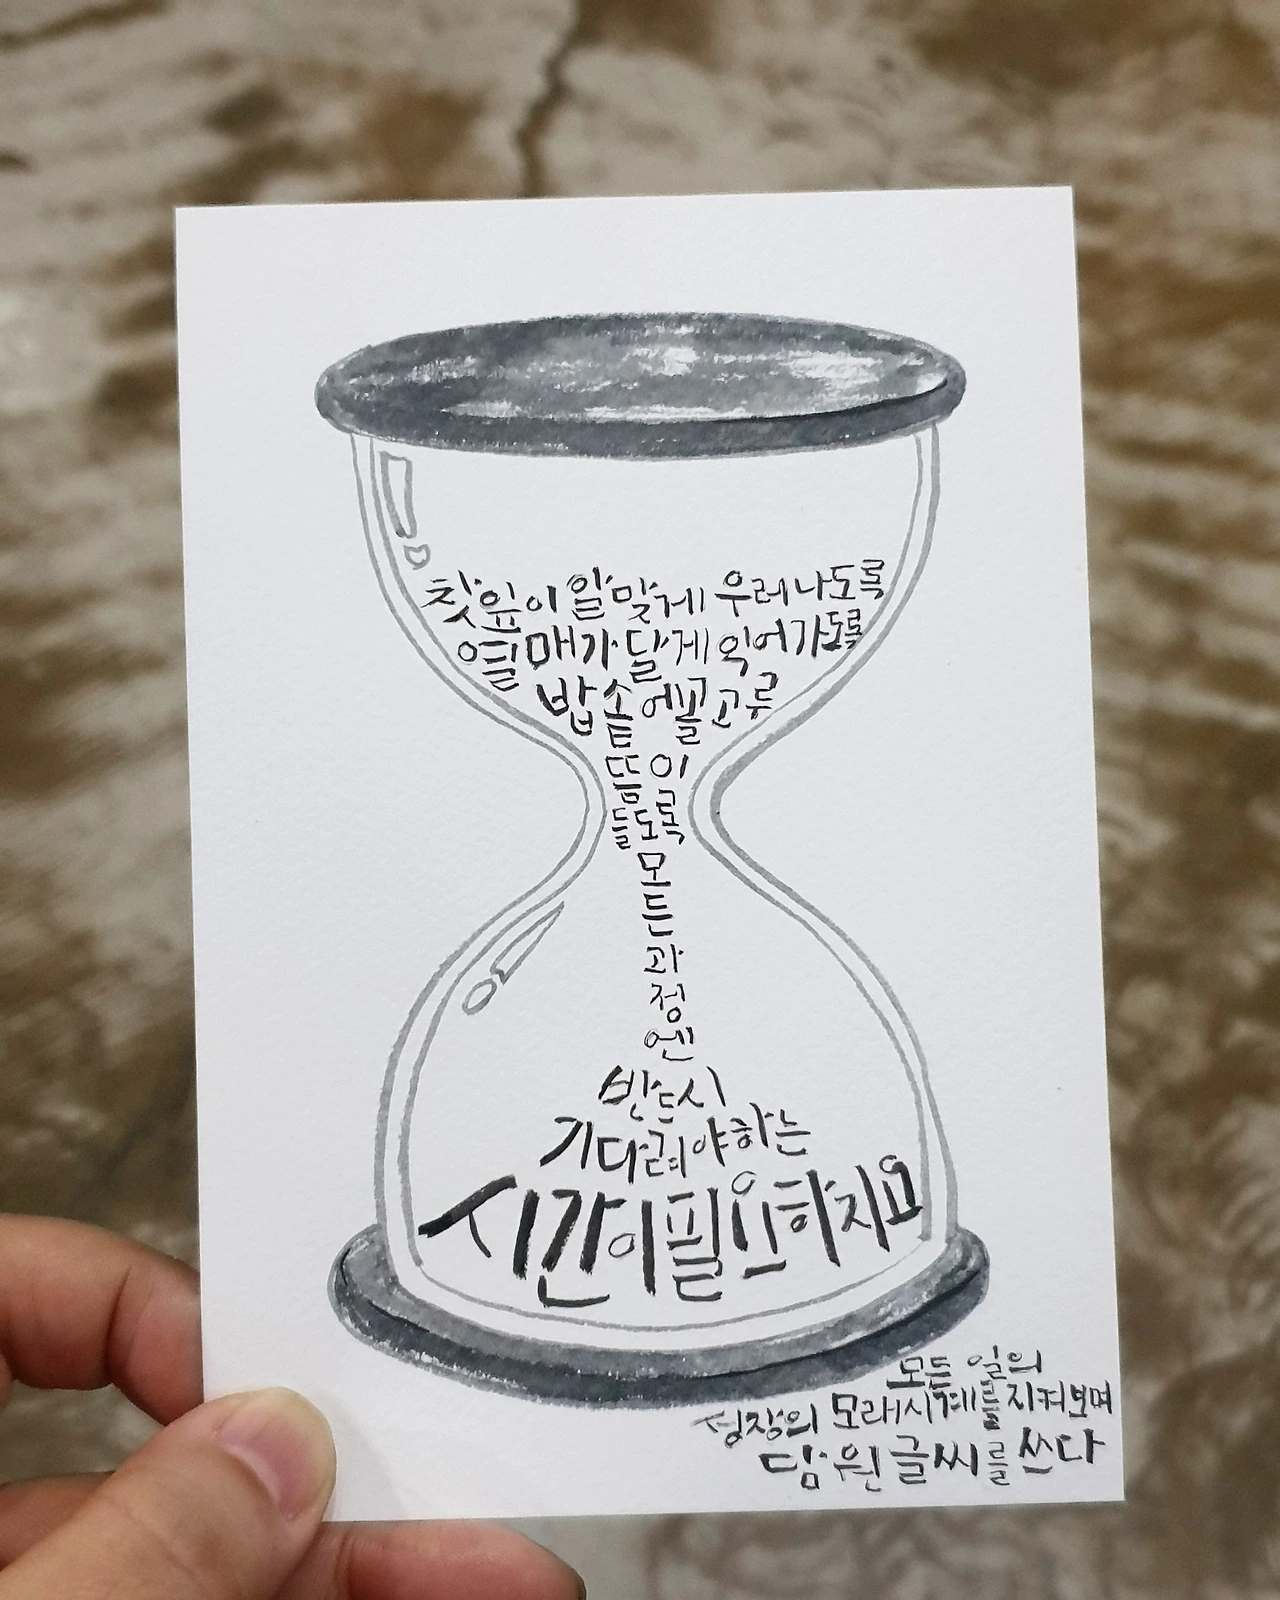 찻잎이 알맞게 우러나도록
열매가 달게 익어가도록
밥솥에 골고루
뜸이
들도록
모
든
과
정
엔
반드시
기다려야하는
시간이필요하지요
모든 일의
성장의 모래시계를 지켜보며
담원글씨를 쓰다